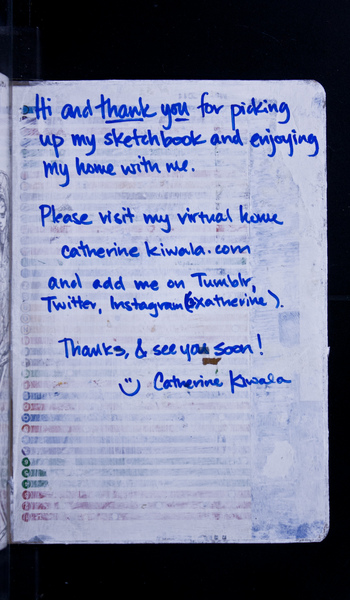 Hi and thank you for picking
up my sketchbook and enjoying
my home with me.
Please visit my virtual home
catherinekiwala.com
and add me on Tumblr,
Twitter, Instagram (@xatherine).
Thanks, & see you soon!
Catherine Kiwala